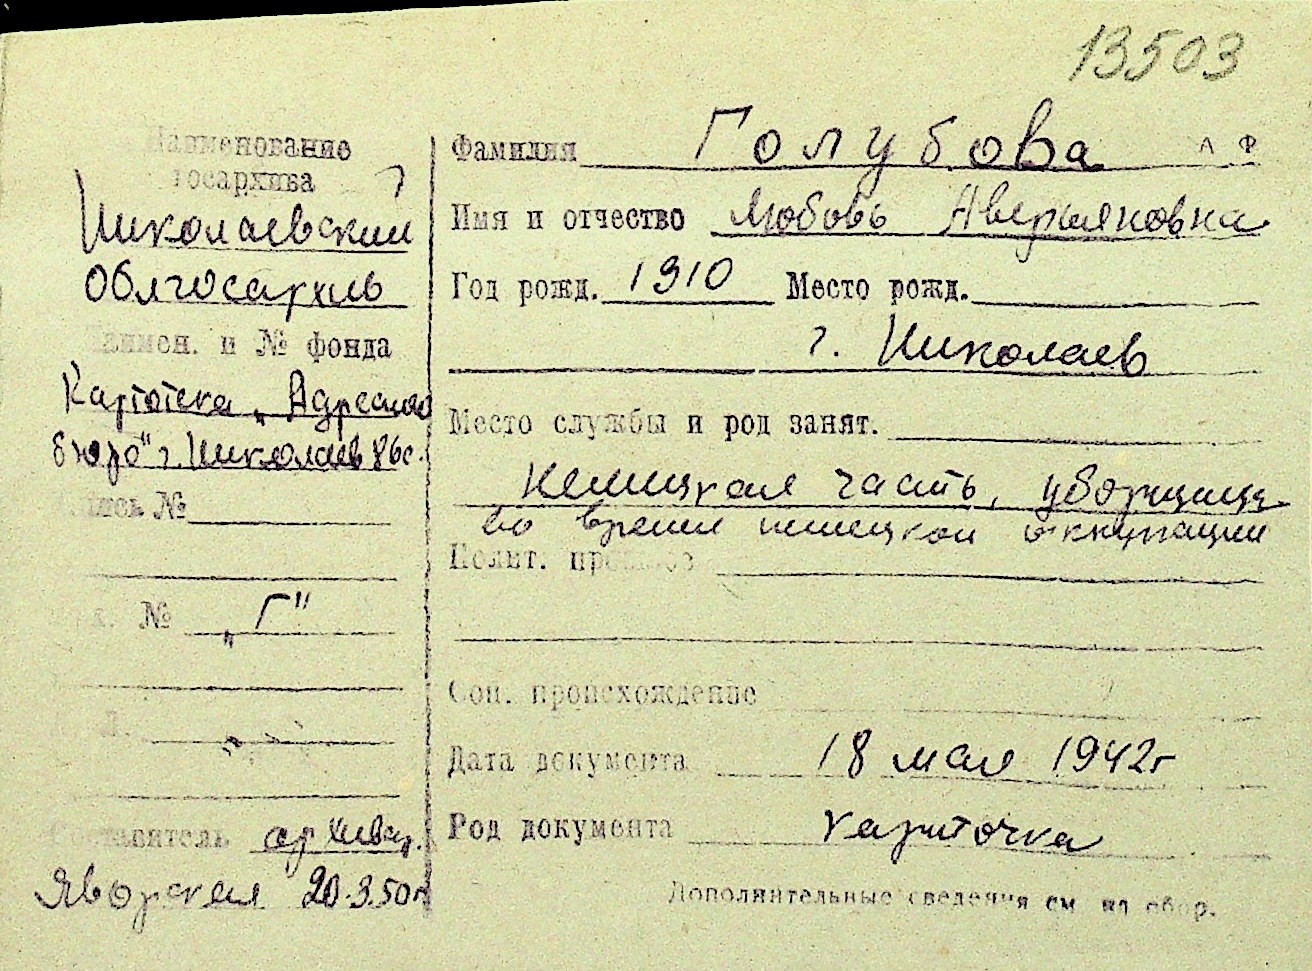 13503
Наименование
госархива
Николаевский
Облгосархив
Наимен. и № фонда
Картотека „Адресного
бюро" г. Николаев
Опись №
№ „Г"
Составитель архивар.
Яворская 20.3.50г
Фамилия Голубова
Имя и отчество Любовь Аверьяновна
Год рожд. 1910 Место рожд.
г. Николаев
Место службы и род занят.
немецкая часть, уборщица
во время немецкой оккупации
Полит. прошлое
Соц. происхождение
Дата документа 18 мая 1942г
Род документа карточка
Дополнительные сведения см на обор.